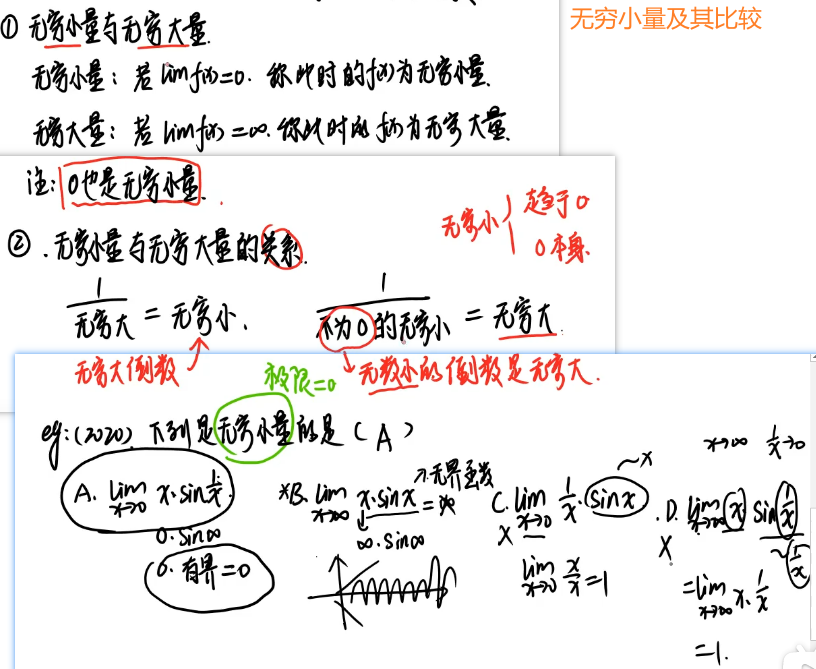 无穷小量及其比较
① 无穷小量与无穷大量.
无穷小量：若 lim f(x)=0. 称此时的f(x)为无穷小量.
无穷大量：若 lim f(x)=∞. 你此时的 f(x)为无穷大量.
注: 0也是无穷小量.
无穷小 { 趋于0
0本身.
② .无穷小量与无穷大量的关系.
1/无穷大 = 无穷小. 1/不为0的无穷小 = 无穷大.
无穷大倒数 无数小的倒数是无穷大.
极限=0
eg:(2020). 下列是无穷小量的是( A )
x→∞ 1/x→0
A. lim x→0 x·sin 1/x.
0·sin∞
0·有界=0
×B. lim x→∞ x·sinx = ∞
无界函数
∞·sin∞
C. lim x→0 1/x·sinx
~x
×
lim x→0 x/x =1
.D. lim x→∞ x sin 1/x
~ 1/x
×
= lim x→∞ x·1/x
=1.